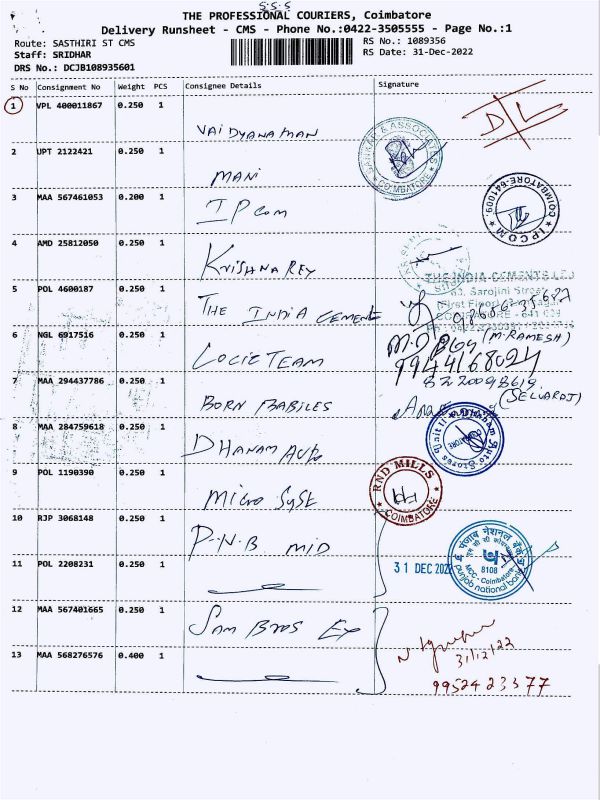 S-S-S
THE PROFESSIONAL COURIERS, Coimbatore
Delivery Runsheet - CMS - Phone No.:0422-3505555 - Page No.:1
Route: SASTHIRI ST CMS
Staff: SRIDHAR
DRS No.: DCJB108935601
RS No.: 1089356
RS Date: 31-Dec-2022
S No Consignment No Weight PCS Consignee Details Signature
1 VPL 400011867 0.250 1
VAIDYANAMAN
D/L
SANKAR & ASSOCIATES
COIMBATORE
2 UPT 2122421 0.250 1
MANI
3 MAA 567461053 0.200 1
IPCOM
COIMBATORE-641009.
IPCOM
4 AMD 25812050 0.250 1
KRISHNA REY
5 POL 4600187 0.250 1
THE INDIA CEMENTS
THE INDIA CEMENTS LTD
Sarojini Street
COIMBATORE - 641 009
6 NGL 6917516 0.250 1
LOCIE TEAM
(M.RAMESH)
9944168024
7 MAA 294437786 0.250 1
BORN BABILES
(SELVARDJ)
8 MAA 284759618 0.250 1
DHANAM Auto
Dhanam Auto Stores Unit II
COIMBATORE
9 POL 1190390 0.250 1
MICRO SYST
RND MILLS
COIMBATORE
10 RJP 3068148 0.250 1
P.N.B MID
11 POL 2208231 0.250 1
31 DEC 2022
पंजाब नैशनल बैंक
8108
MCC - Coimbatore
punjab national bank
12 MAA 567401665 0.250 1
SAM BROS EX
31/12/22
13 MAA 568276576 0.400 1
9952423377